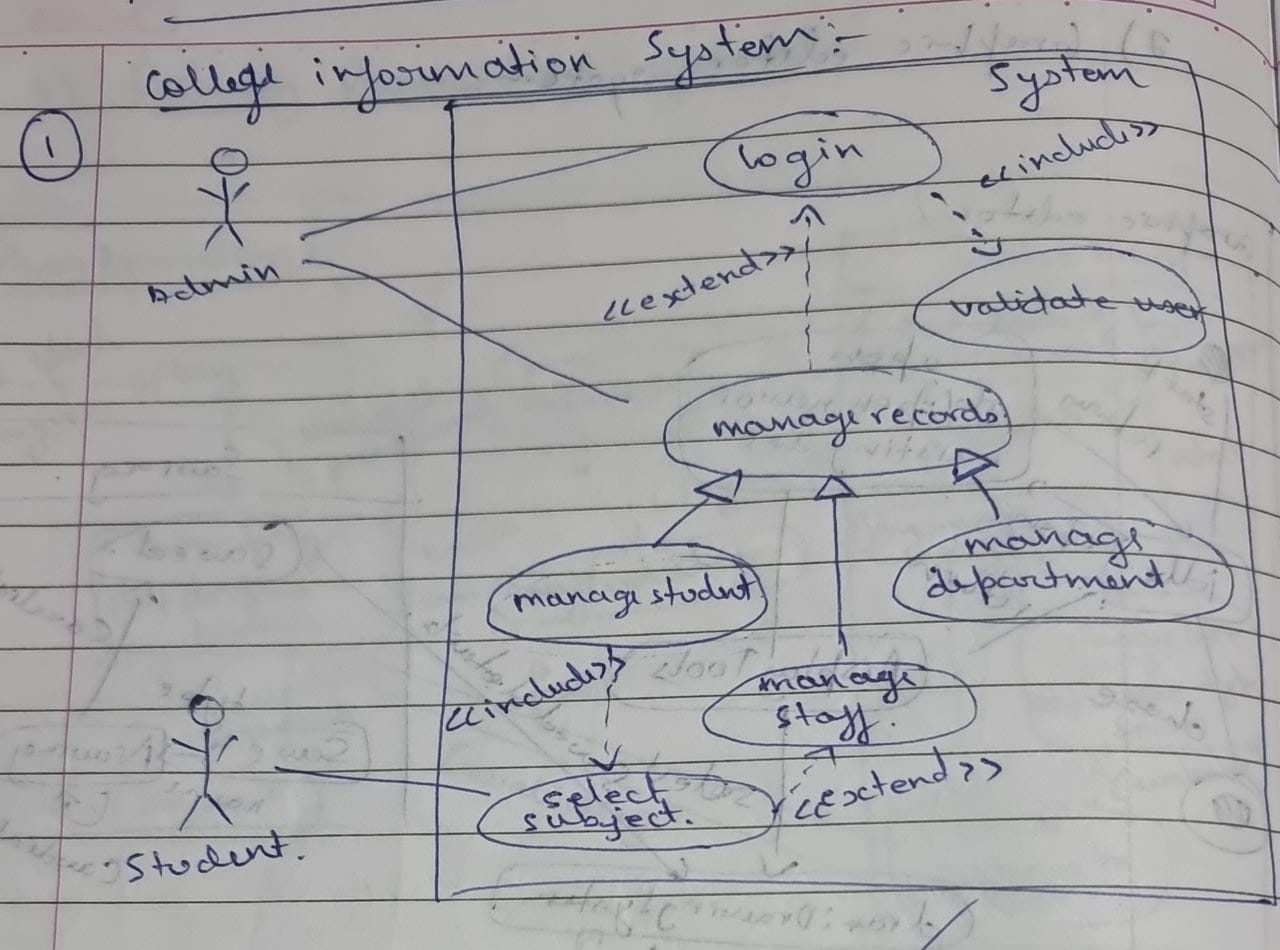 College information System:-
System
1
Login
<<include>>
Admin
<<extend>>
validate user
manage records
manage
department
manage student
<<include>>
manage
staff.
select
subject.
<<extend>>
Student.